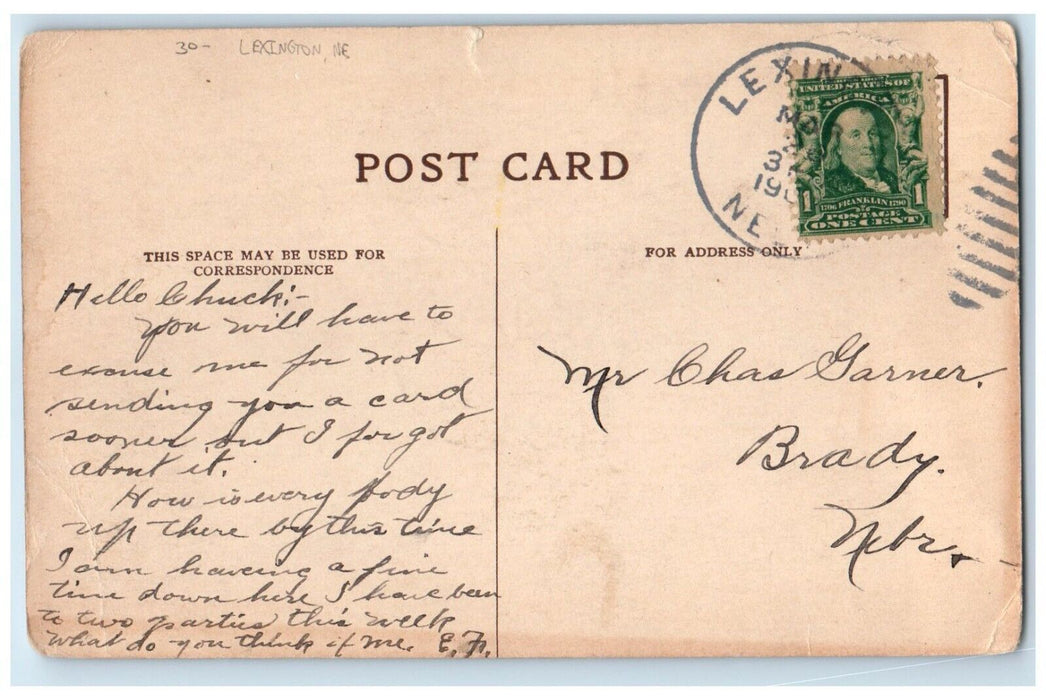 30- LEXINGTON, NE
LEXIN
3
190
NE
UNITED STATES OF
AMERICA
1 1
1706 FRANKLIN 1790
POSTAGE
ONE CENT
POST CARD
THIS SPACE MAY BE USED FOR
CORRESPONDENCE
FOR ADDRESS ONLY
Hello Chuck:-
You will have to
excuse me for not
sending you a card
sooner but I forgot
about it.
How is every body
up there by this time
I am haveing a fine
time down here I have been
to two parties this week
what do you think if me. E.F.
Mr Chas Garner.
Brady.
Nebr.